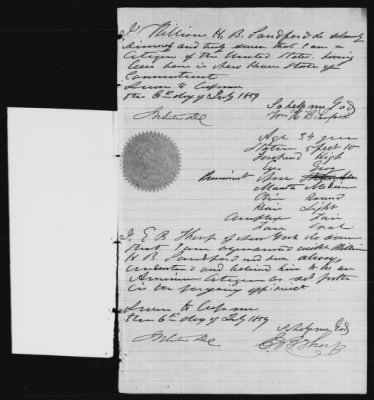 I, William H. B. Sandford do solemnly
sincerely and truly swear that I am a
Citizen of the United States, having
been born in New Haven State of
Connecticut
Sworn to before me
this 6th day of July 1859
So help me God
Wm H B Sandford
Age 34 years
Stature 5 feet 10
Forehead High
Eyes Grey
Prominent Nose
Mouth Medium
Chin Round
Hair Light
Complexion Fair
Face Oval
I, E B Tharp of New York do swear
that I am acquainted with William
H B Sandford and have always
understood and believed him to be an
American Citizen as set forth
in the foregoing affidavit
Sworn to before me
this 6th day of July 1859
So help me God
E B Tharp